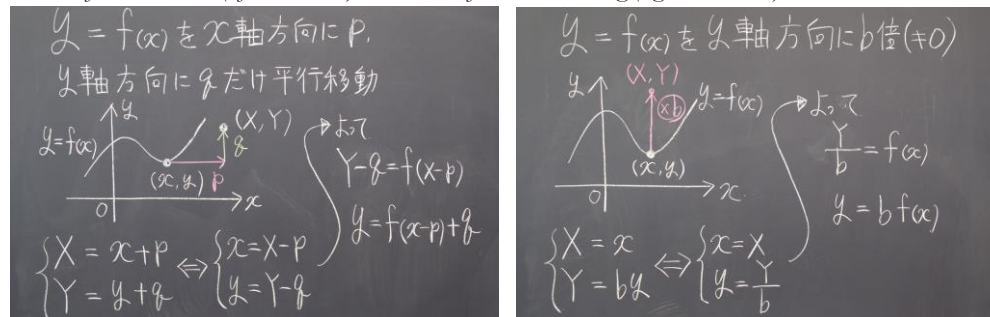 y = f(x)をx軸方向にp,
y軸方向にqだけ平行移動
y
(X,Y)
y=f(x)
q
(x,y)
p
O
x
よって
Y-q=f(X-p)
y=f(x-p)+q
{X = x+p ⇔ {x=X-p
{Y = y+q {y=Y-q
y = f(x)をy軸方向にb倍(≠0)
(X,Y)
y
×b
y=f(x)
(x,y)
O
x
よって
Y/b = f(x)
y = b f(x)
{X = x ⇔ {x=X
{Y = by {y=Y/b